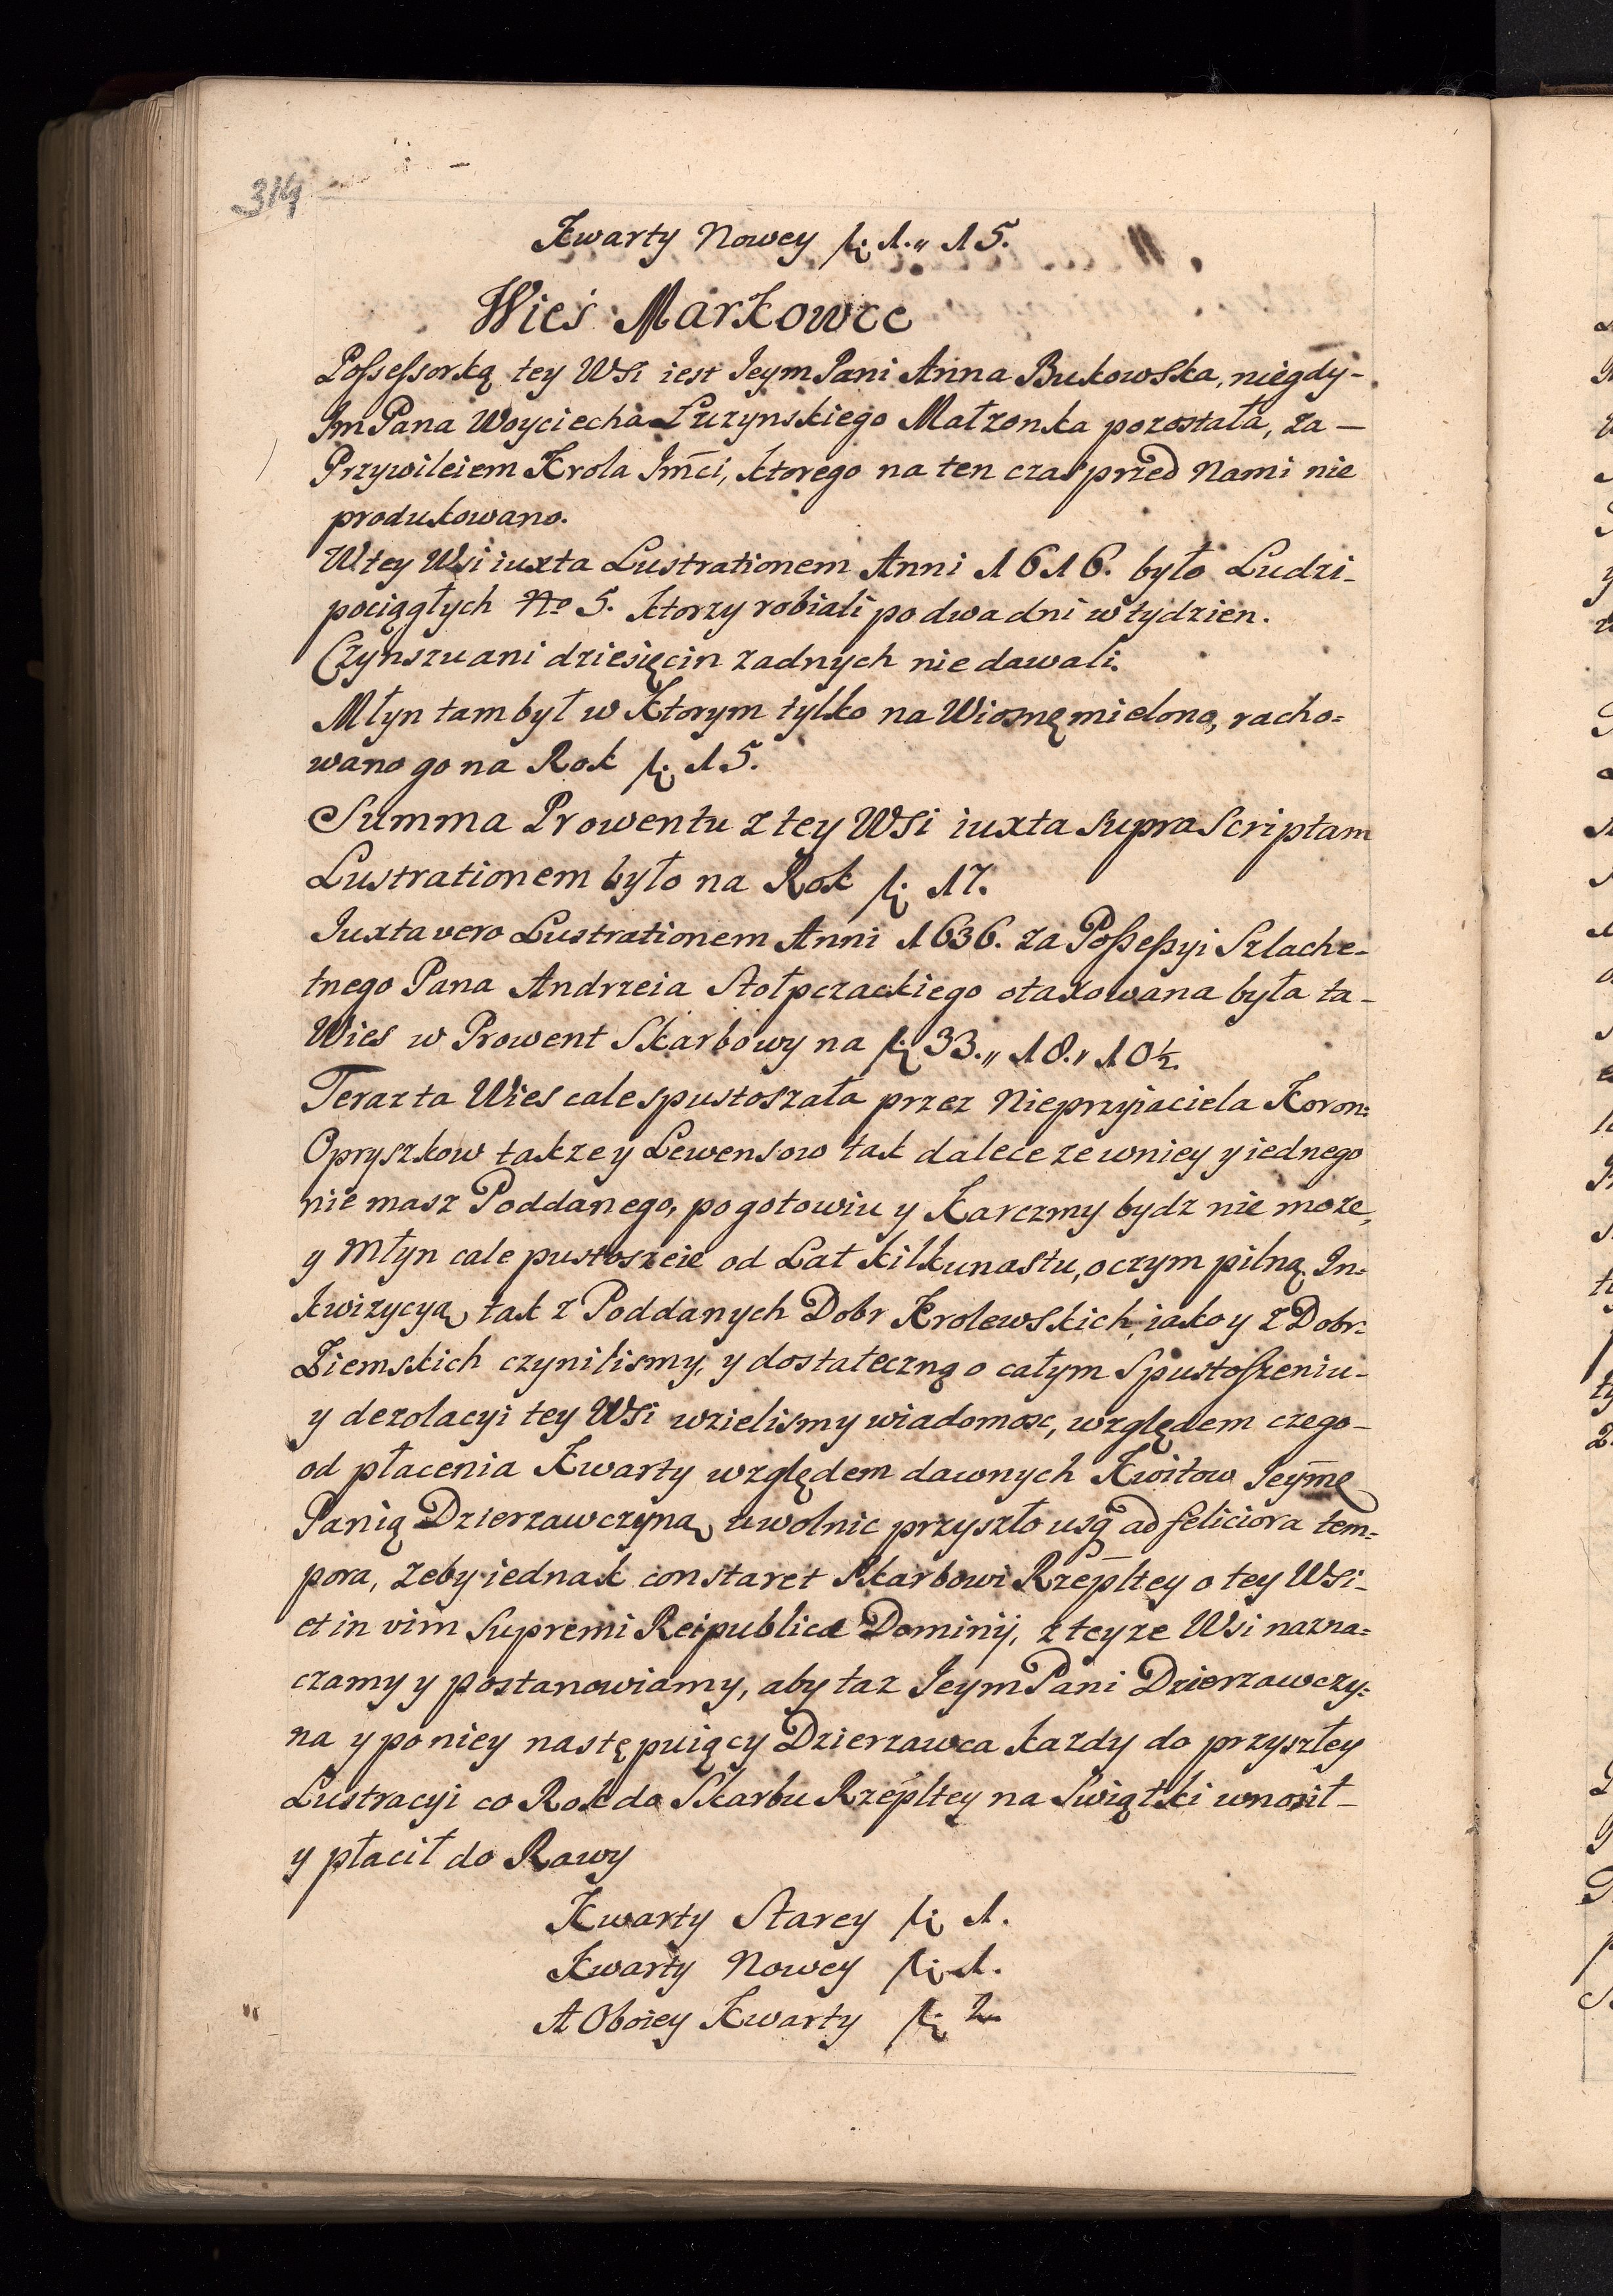 314
Kwarty Nowey fl: 1.„ 15.
Wieś Markowce
Possessorką tey Wsi iest Jeym Pani Anna Bukowska, niegdy-
Jm Pana Woyciecha Łuzynskiego Małzonka pozostała, za —
Przywileiem Krola Jmći, ktorego na ten czas przed Nami nie
produkowano.
W tey Wsi iuxta Lustrationem Anni 1616. było Ludzi-
pociągłych No 5. ktorzy robiali po dwa dni w tydzien.
Czynszu ani dziesięcin zadnych nie dawali.
Młyn tam był w Ktorym tylko na Wiosnę mielono, racho=
wano go na Rok fl: 15.
Summa Prowentu z tey Wsi iuxta supra Scriptam
Lustrationem było na Rok fl: 17.
Juxta vero Lustrationem Anni 1636. za Possessyi Szlache-
tnego Pana Andrzeia Stołpczackiego otaxowana była ta-
Wies w Prowent Skarbowy na fl: 33.„ 18.„ 10½.
Teraz ta Wies cale spustoszała przez Nieprzyiaciela Koron:
Opryszkow takze y Lewensow tak dalece ze w niey y iednego
nie masz Poddanego, pogotowiu y Karczmy bydz nie moze,
y Młyn cale pustoszeie od Lat kilkunastu, o czym pilną In=
kwizycyą tak z Poddanych Dobr Krolewskich, iako y z Dobr=
Ziemskich czynilismy, y dostateczną o całym Spustoszeniu-
y dezolacyi tey Wsi wzielismy wiadomosc, względem czego-
od płacenia Kwarty względem dawnych Kwitow Jeyme
Panią Dzierzawczyną uwolnic przyszło usq ad feliciora tem=
pora, zeby iednak constaret Skarbowi Rzepltey o tey Wsi-
et in vim Supremi Reipublicæ Dominij, z teyze Wsi nazna=
czamy y postanowiamy, aby taz Jeym Pani Dzierzawczy=
na y po niey następuiący Dzierzawca kazdy do przyszłey
Lustracyi co Rok do Skarbu Rzepltey na Swiątki wnosił-
y płacił do Rawy
Kwarty Starey fl: 1.
Kwarty Nowey fl: 1.
A Oboiey Kwarty fl: 2.